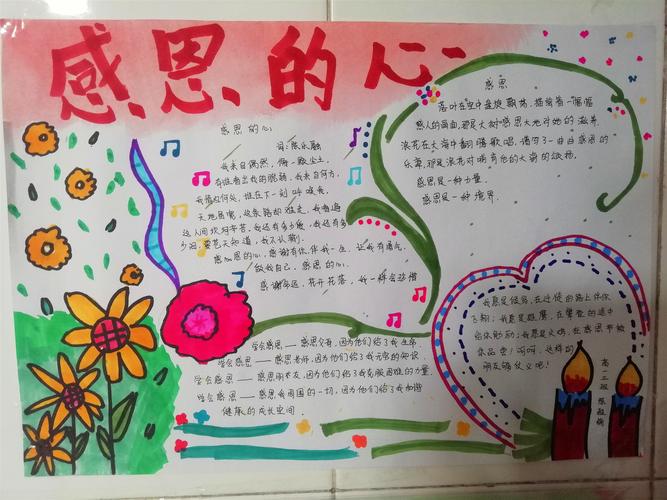 感恩的心
感恩的心
词:陈乐融
我来自偶然,像一颗尘土,
有谁看出我的脆弱,我来自何方,
我情归何处,谁在下一刻呼唤我,
天地虽宽,这条路却难走,我看遍
这人间坎坷辛苦,我还有多少爱,我还有多
少泪,要苍天知道,我不认输.
感恩的心,感谢有你,伴我一生,让我有勇气,
做我自己,感恩的心,
感谢命运,花开花落,我一样会珍惜
感恩
落叶在空中盘旋飘荡,描绘着一幅幅
感人的画面,那是大树感恩大地对她的滋养.
浪花在大海中翻腾歌唱,谱写了一曲曲感恩的
乐章,那是浪花对哺育他的大海的颂扬.
感恩是一种力量.
感恩是一种境界.
学会感恩——感恩父母,因为他们给了我生命.
学会感恩——感恩老师,因为他们给了我无穷的知识
学会感恩——感恩朋友,因为他们给了我克服困难的力量.
学会感恩——感恩我周围的一切,因为他们给了我和谐
健康的成长空间.
我愿是信鸽,在迁徙的路上伴你
飞翔;我愿是雄鹰,在攀登的途中
给你勉励;我愿是火鸡,在感恩节被
你品尝!呵呵,这样的
朋友够仗义吧!
高一三班